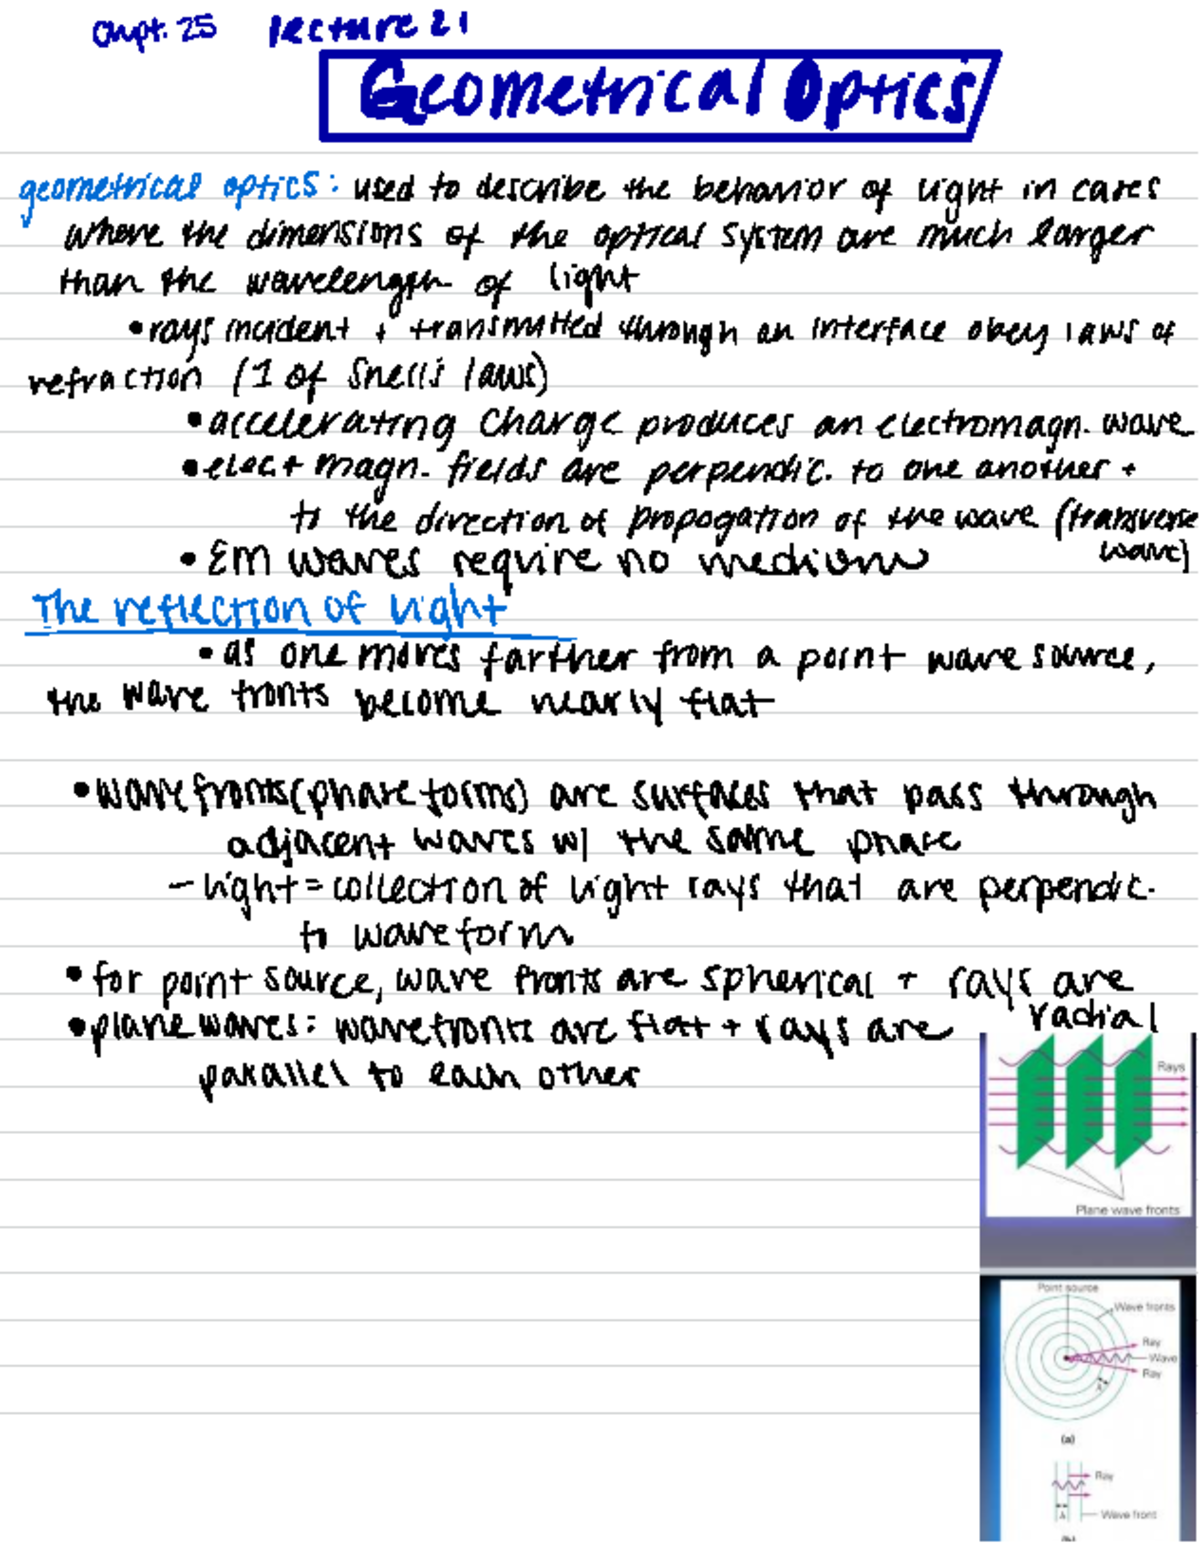 Chpt. 25 lecture 21
Geometrical Optics
geometrical optics: used to describe the behavior of light in cases
where the dimensions of the optical system are much larger
than the wavelength of light
• rays incident + transmitted through an interface obey laws of
refraction (1 of Snell's laws)
• accelerating charge produces an electromagn. wave
• elec + magn. fields are perpendic. to one another +
to the direction of propogation of the wave (transverse
wave)
• EM waves require no medium
The reflection of light
• as one moves farther from a point wave source,
the wave fronts become nearly flat
• wave fronts (phase forms) are surfaces that pass through
adjacent waves w/ the same phase
– light = collection of light rays that are perpendic.
to wave form
• for point source, wave fronts are spherical + rays are
radial
• plane waves: wavefronts are flat + rays are
parallel to each other
Rays
Plane wave fronts
Point source
Wave fronts
Ray
Wave
Ray
λ
(a)
Ray
λ
Wave front